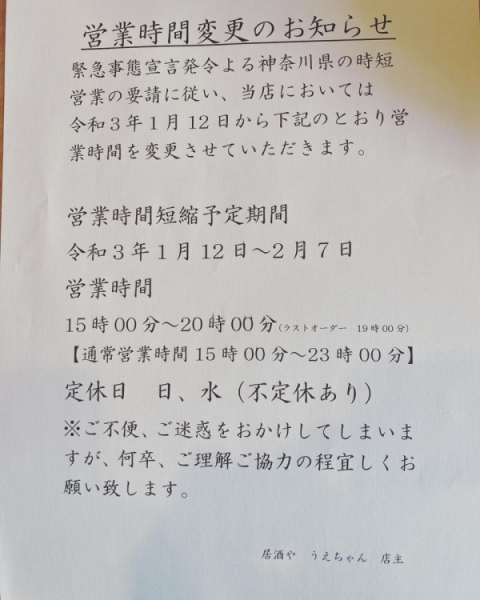 営業時間変更のお知らせ
緊急事態宣言発令よる神奈川県の時短
営業の要請に従い、当店においては
令和3年1月12日から下記のとおり営
業時間を変更させていただきます。
営業時間短縮予定期間
令和3年1月12日～2月7日
営業時間
15時00分～20時00分(ラストオーダー 19時00分)
【通常営業時間15時00分～23時00分】
定休日 日、水（不定休あり）
※ご不便、ご迷惑をおかけしてしまいま
すが、何卒、ご理解ご協力の程宜しくお
願い致します。
居酒や うえちゃん 店主